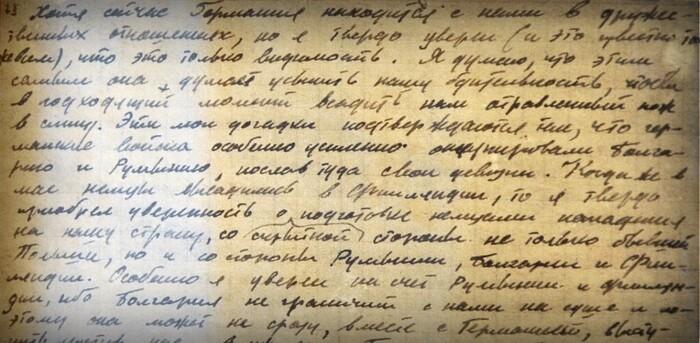 Хотя сейчас Германия находится с нами в друже-
ственных отношениях, но я твердо уверен (и это известно также
всем), что это только видимость. Я думаю, что этим
самым она думает усыпить нашу бдительность, чтобы
в подходящий момент всадить нам отравленный нож
в спину. Эти мои догадки подтверждаются тем, что гер-
манские войска особенно усиленно оккупировали Болга-
рию и Румынию, послав туда свои дивизии. Когда же в
мае немцы высадились в Финляндии, то я твердо
приобрел уверенность о подготовке немцами нападения
на нашу страну, со скрытной стороны не только бывшей
Польши, но и со стороны Румынии, Болгарии и Фин-
ляндии. Особенно я уверен на счет Румынии и Финлян-
дии, ибо Болгария не граничит с нами на суше и по-
этому она может не сразу, вместе с Германией, высту-